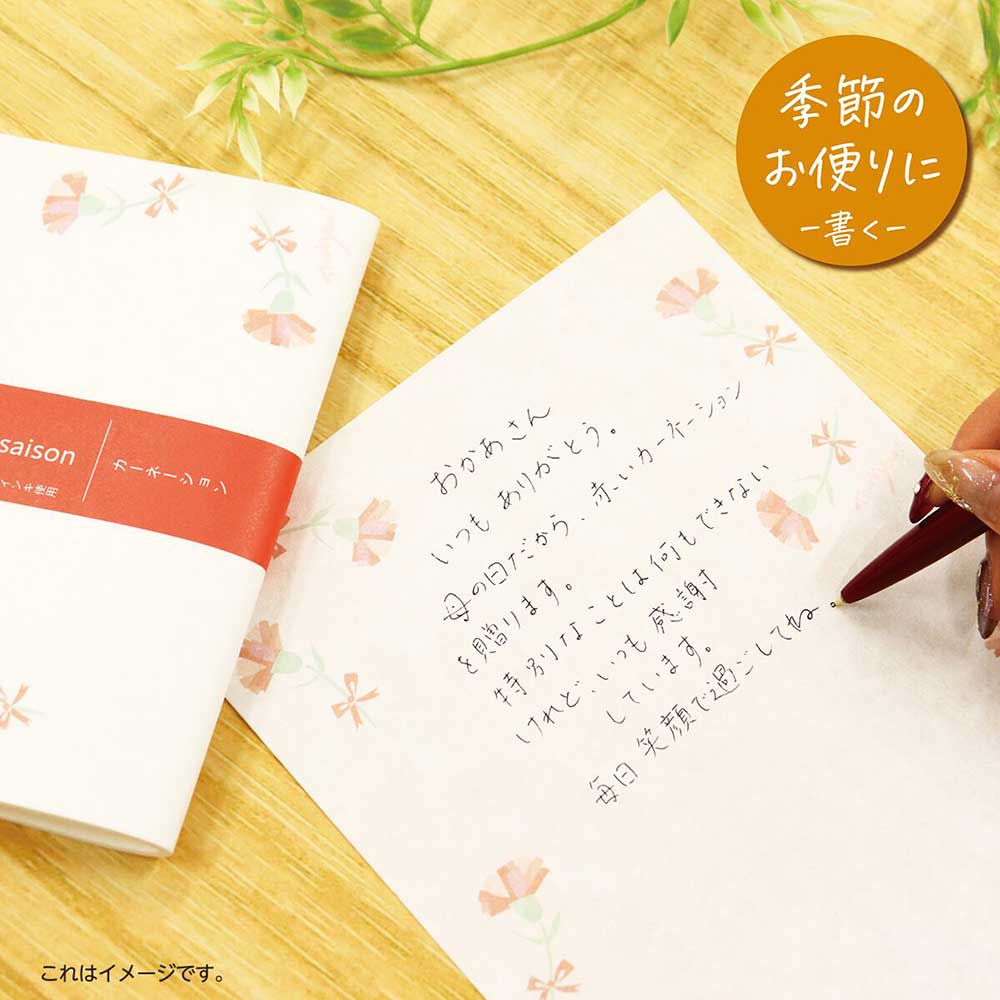 季節の
お便りに
－書く－
saison
インキ使用
カーネーション
おかあさん
いつもありがとう。
母の日だから、赤いカーネーション
を贈ります。
特別なことは何もできない
けれど、いつも感謝
しています。
毎日笑顔で過ごしてね。
これはイメージです。